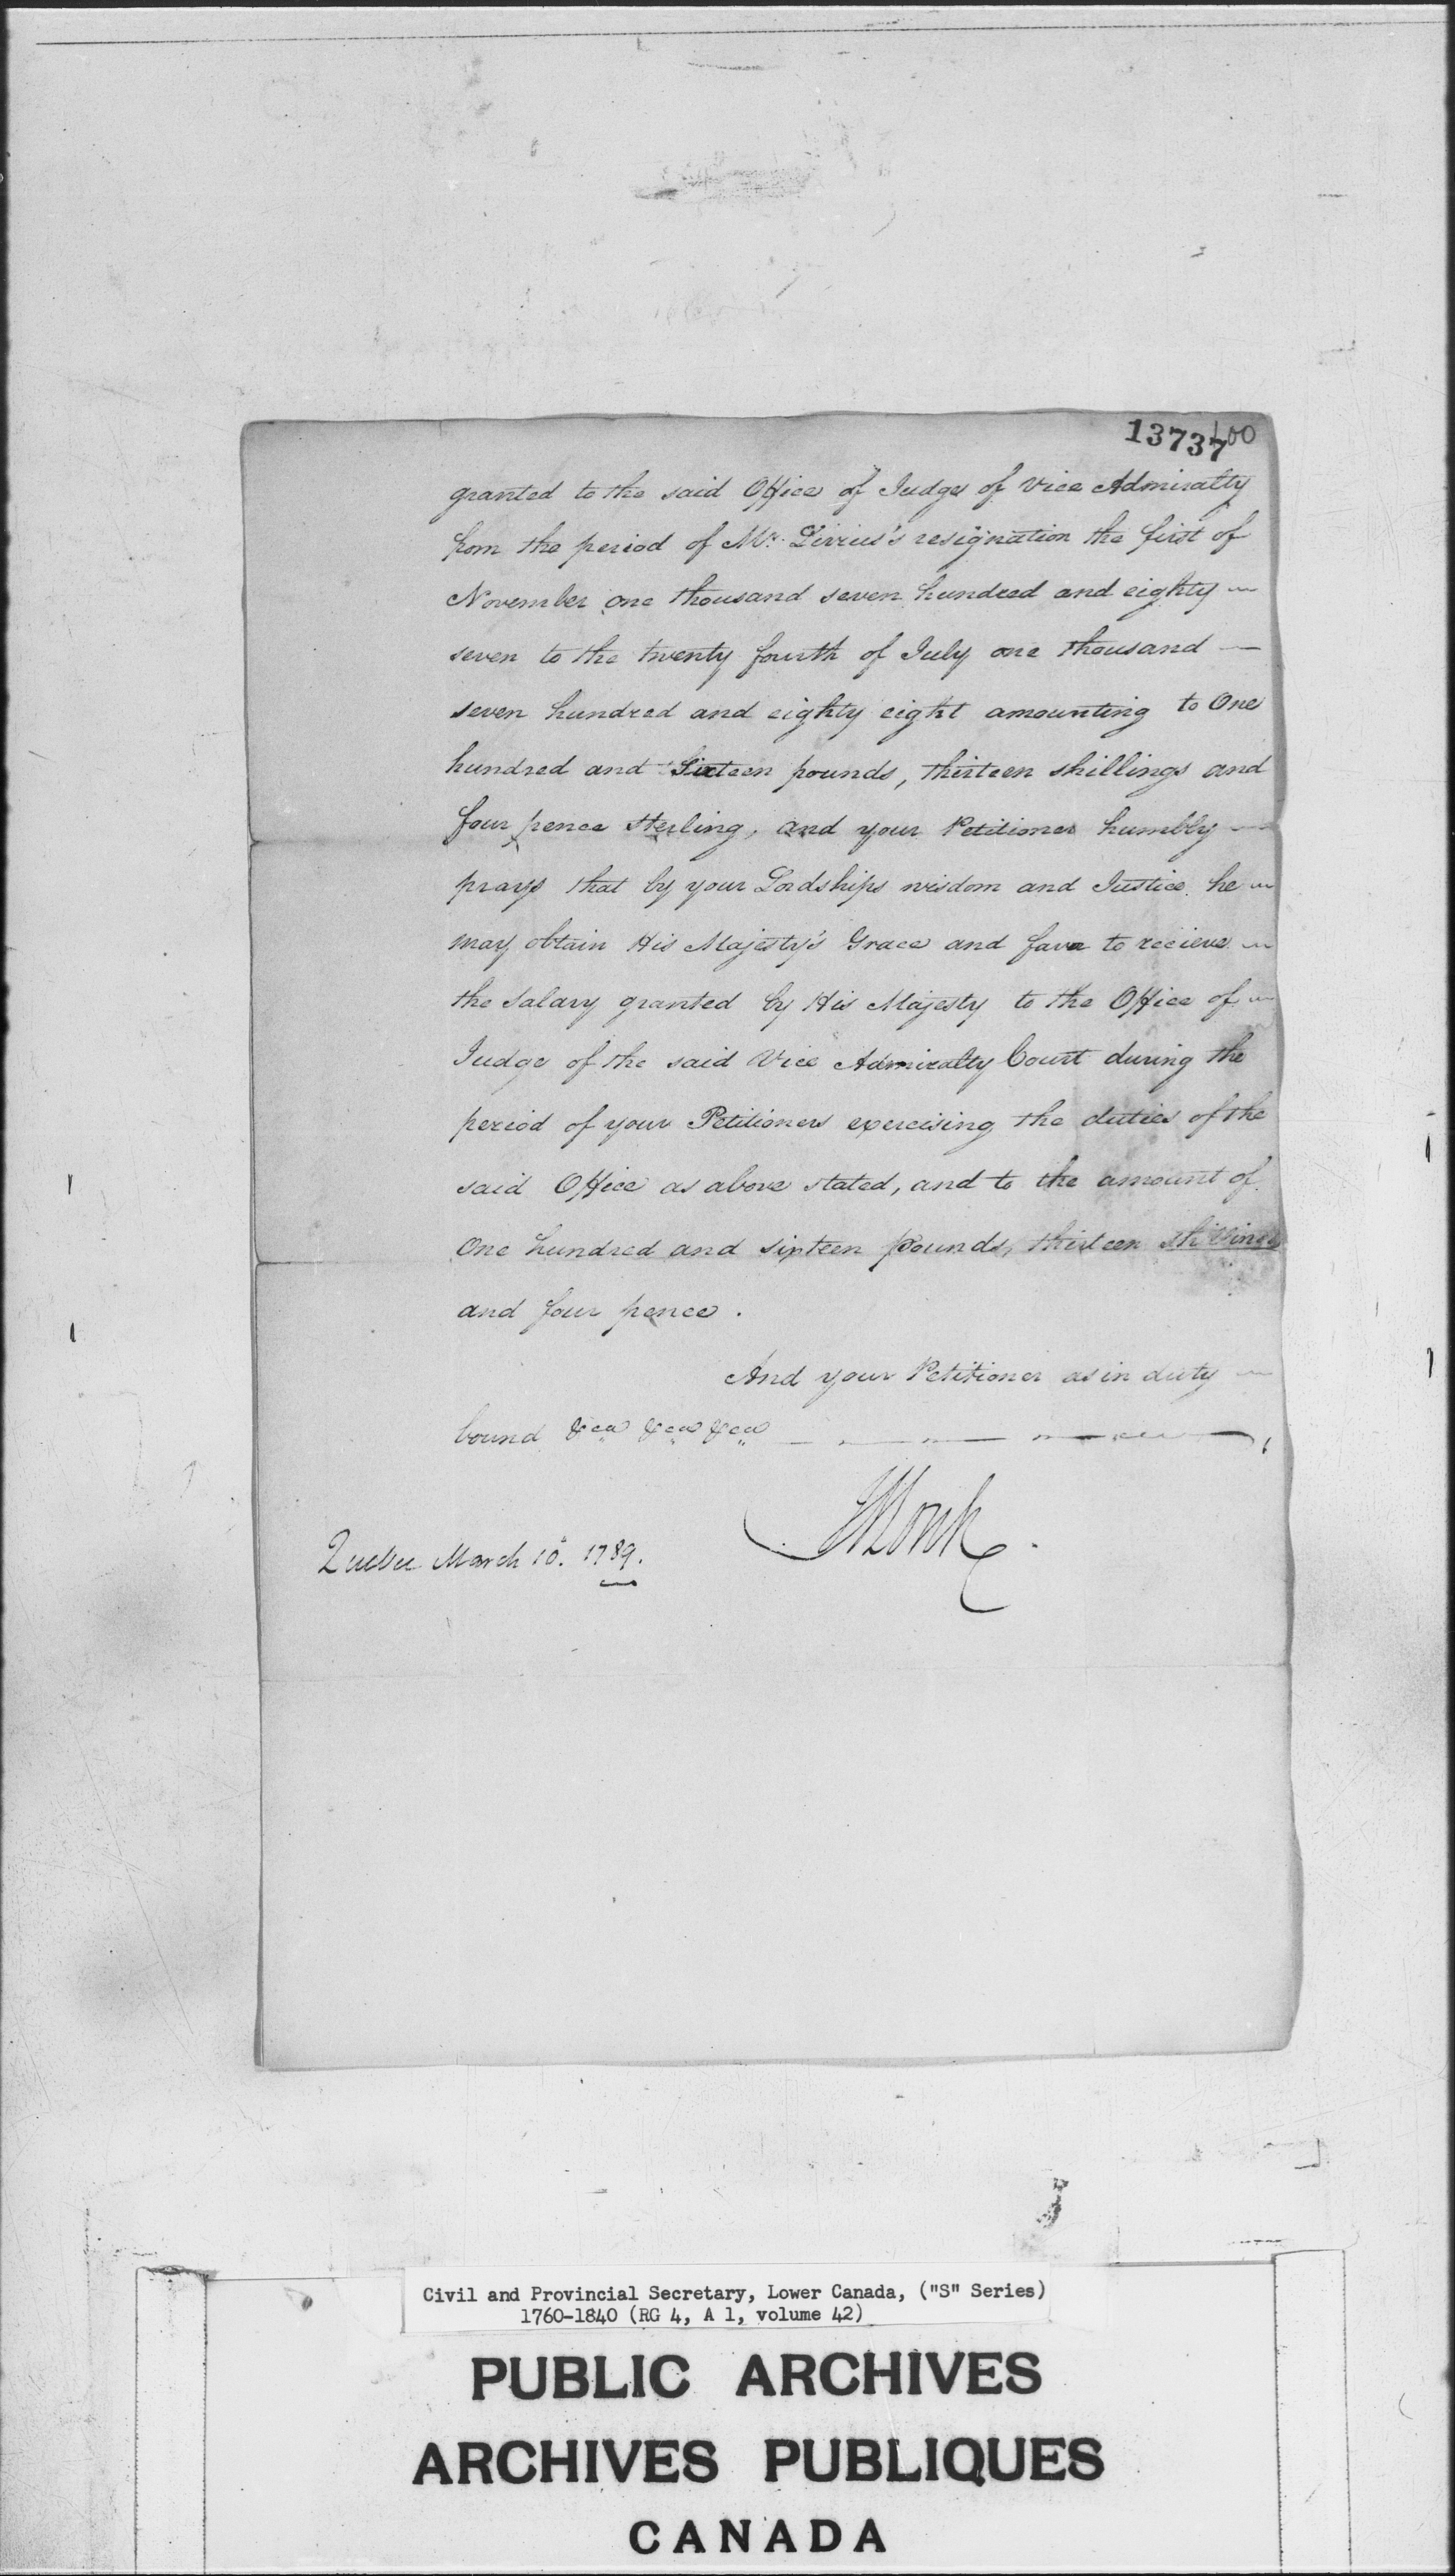 13737 100
granted to the said Office of Judge of Vice Admiralty
from the period of Mr. Livius's resignation the first of
November one thousand seven hundred and eighty
seven to the twenty fourth of July one thousand
seven hundred and eighty eight amounting to One
hundred and Sixteen pounds, thirteen shillings and
four pence Sterling, and your Petitioner humbly
prays that by your Lordships wisdom and Justice he
may obtain His Majesty's Grace and favor to recieve
the Salary granted by His Majesty to the Office of
Judge of the said Vice Admiralty Court during the
period of your Petitioners exercising the duties of the
said Office as above stated, and to the amount of
One hundred and sixteen pounds, thirteen shillings
and four pence.
And your Petitioner as in duty
bound &ca &ca &ca
JMonk
Quebec March 10. 1789.
Civil and Provincial Secretary, Lower Canada, ("S" Series)
1760-1840 (RG 4, A 1, volume 42)
PUBLIC ARCHIVES
ARCHIVES PUBLIQUES
CANADA